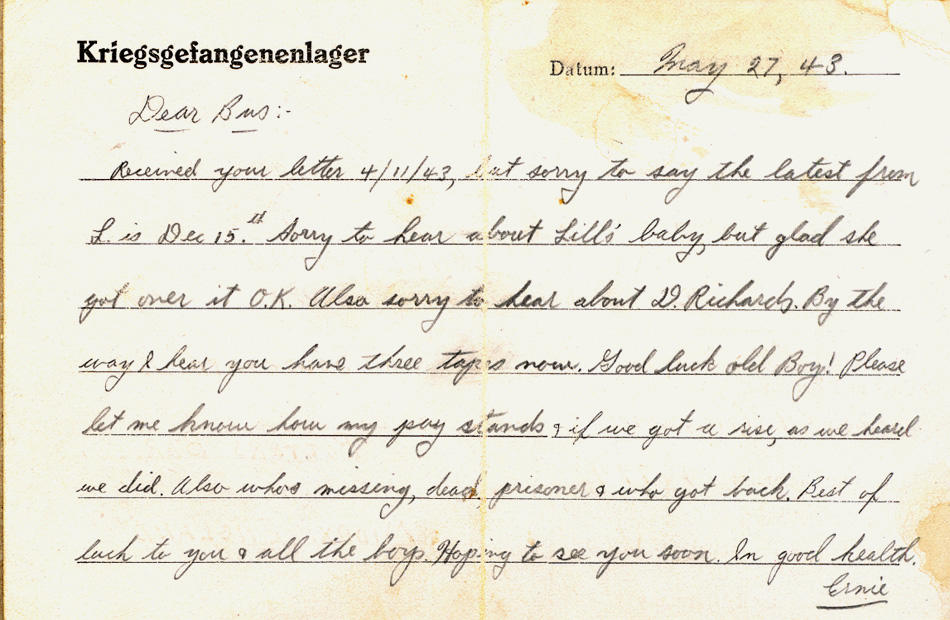 Kriegsgefangenenlager
Datum: May 27, 43.
Dear Bus:-
Received your letter 4/11/43, but sorry to say the latest from
L. is Dec 15.th Sorry to hear about Lill's baby, but glad she
got over it O.K. Also sorry to hear about D. Richards. By the
way I hear you have three tapes now. Good luck old Boy! Please
let me know how my pay stands & if we got a rise, as we heard
we did. Also whos missing, dead, prisoner & who got back. Best of
luck to you & all the boys. Hoping to see you soon. In good health.
Ernie